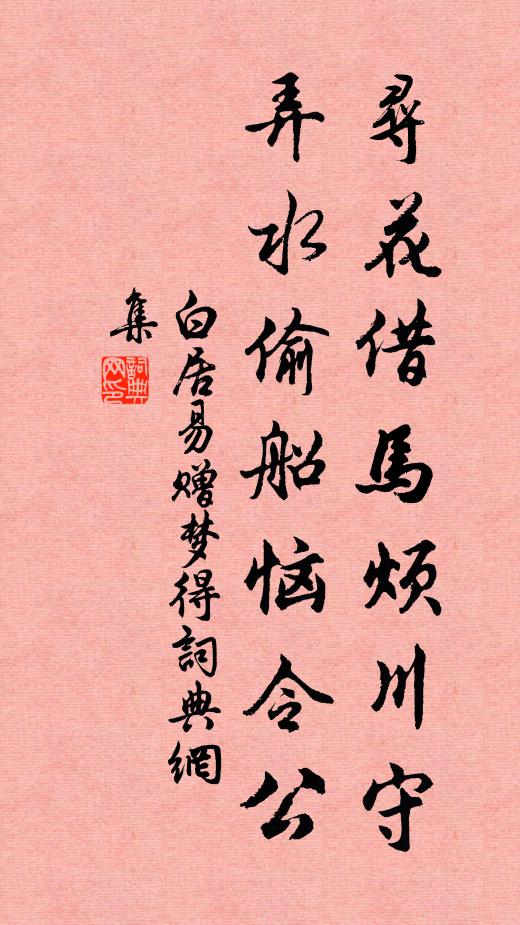 尋花借馬煩川守
弄水偷船恼令公
白居易赠梦得詞典網
集
詞典网印